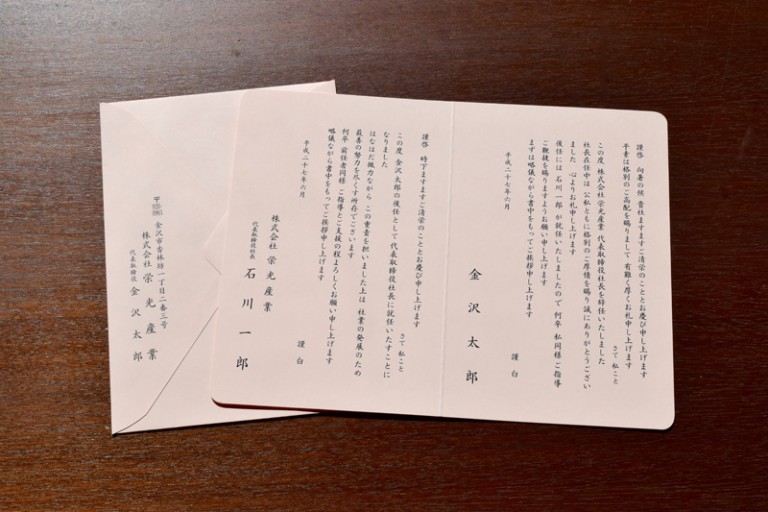 謹啓 向暑の候 貴社ますますご清栄のこととお慶び申し上げます
平素は格別のご高配を賜りまして 有難く厚くお礼申し上げます
さて 私こと
この度 株式会社栄光産業 代表取締役社長を辞任いたしました
社長在任中は 公私ともに格別のご厚情を賜り 誠にありがとうござい
ました 心よりお礼申し上げます
後任には 石川一郎 が就任いたしましたので 何卒 私同様 ご指導
ご鞭撻を賜りますようお願い申し上げます
まずは略儀ながら書中をもってご挨拶申し上げます
謹白
平成二十七年六月
金沢太郎
謹啓 時下ますますご清栄のこととお慶び申し上げます
さて 私こと
この度 金沢太郎の後任として 代表取締役社長に就任いたすことに
なりました
はなはだ微力ながら この重責を担いました上は 社業の発展のため
最善の努力を尽くす所存でございます
何卒 前任者同様 ご指導とご支援の程よろしくお願い申し上げます
略儀ながら書中をもってご挨拶申し上げます
謹白
平成二十七年六月
株式会社 栄光産業
代表取締役社長 石川一郎
金沢市香林坊一丁目二番三号
株式会社 栄光産業
代表取締役 金沢太郎